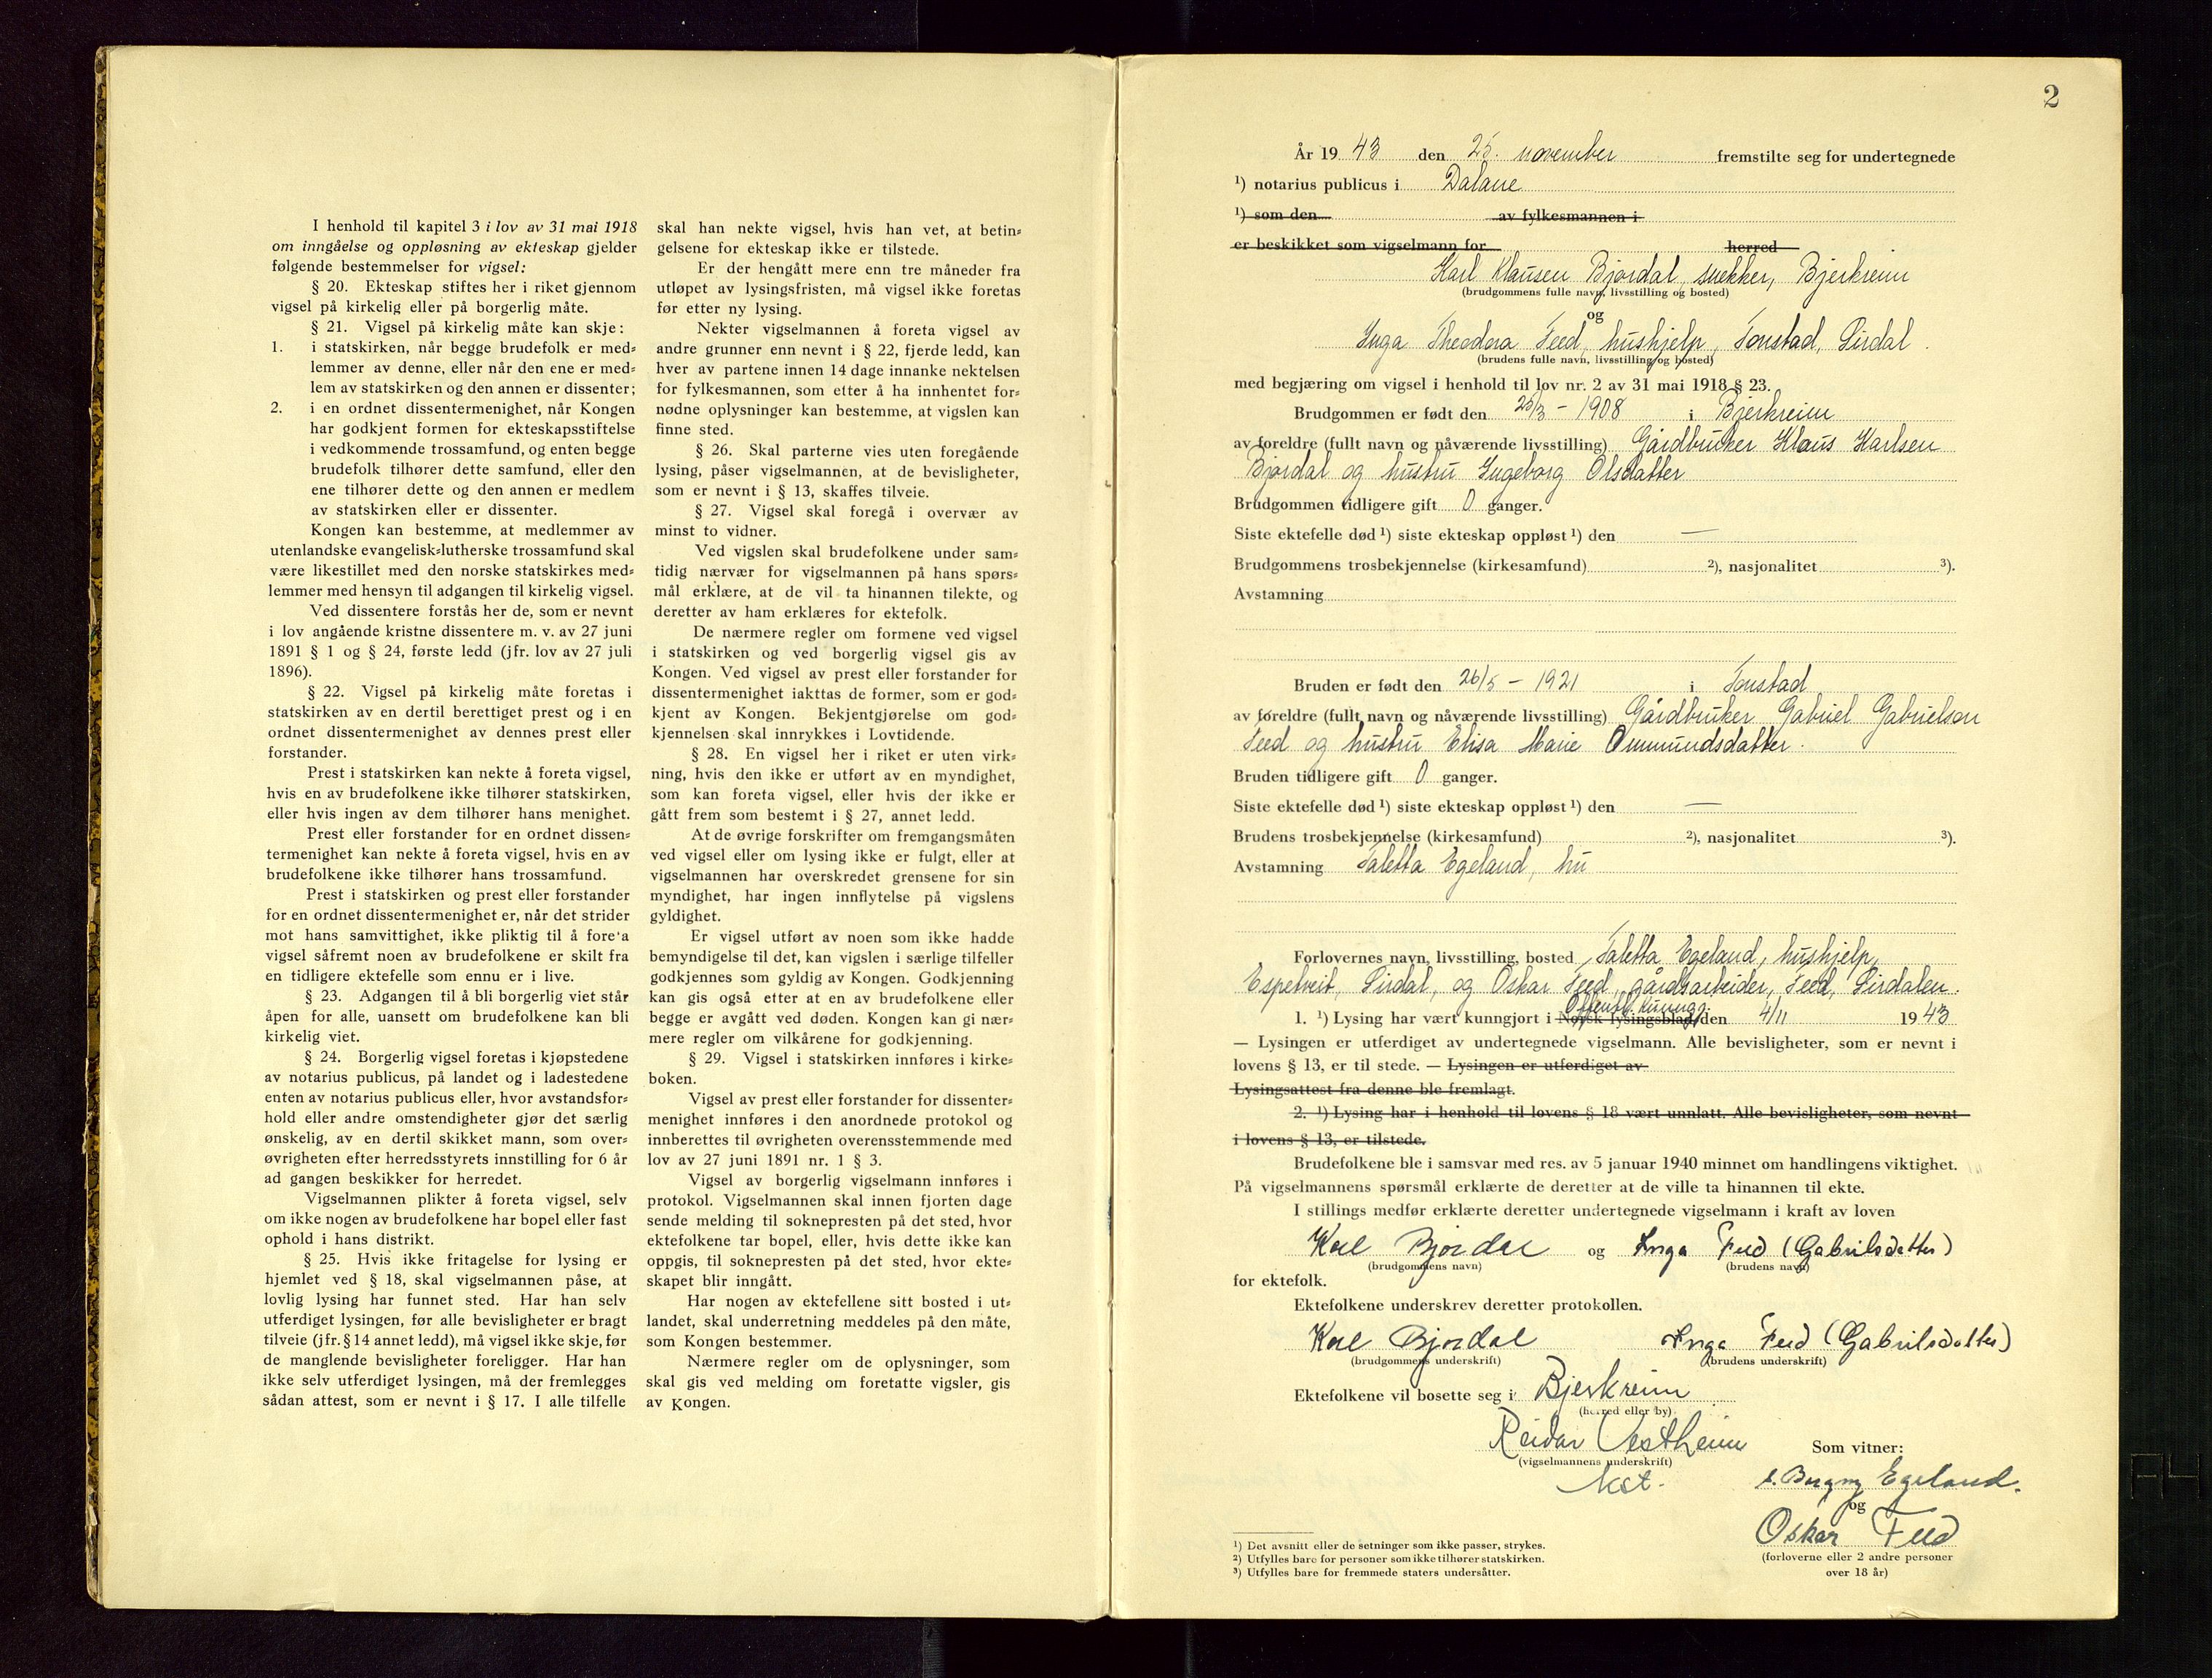 I henhold til kapitel 3 i lov av 31 mai 1918
om inngåelse og oppløsning av ekteskap gjelder
følgende bestemmelser for vigsel:
§ 20. Ekteskap stiftes her i riket gjennom
vigsel på kirkelig eller på borgerlig måte.
§ 21. Vigsel på kirkelig måte kan skje:
1. i statskirken, når begge brudefolk er med=
lemmer av denne, eller når den ene er med=
lem av statskirken og den annen er dissenter;
2. i en ordnet dissentermenighet, når Kongen
har godkjent formen for ekteskapsstiftelse
i vedkommende trossamfund, og enten begge
brudefolk tilhører dette samfund, eller den
ene tilhører dette og den annen er medlem
av statskirken eller er dissenter.
Kongen kan bestemme, at medlemmer av
utenlandske evangelisk=lutherske trossamfund skal
være likestillet med den norske statskirkes med=
lemmer med hensyn til adgangen til kirkelig vigsel.
Ved dissentere forstås her de, som er nevnt
i lov angående kristne dissentere m. v. av 27 juni
1891 § 1 og § 24, første ledd (jfr. lov av 27 juli
1896).
§ 22. Vigsel på kirkelig måte foretas i
statskirken av en dertil berettiget prest og i en
ordnet dissentermenighet av dennes prest eller
forstander.
Prest i statskirken kan nekte å foreta vigsel,
hvis en av brudefolkene ikke tilhører statskirken,
eller hvis ingen av dem tilhører hans menighet.
Prest eller forstander for en ordnet dissen=
termenighet kan nekte å foreta vigsel, hvis en av
brudefolkene ikke tilhører hans trossamfund.
Prest i statskirken og prest eller forstander
for en ordnet dissentermenighet er, når det strider
mot hans samvittighet, ikke pliktig til å fore'a
vigsel såfremt noen av brudefolkene er skilt fra
en tidligere ektefelle som ennu er i live.
§ 23. Adgangen til å bli borgerlig viet står
åpen for alle, uansett om brudefolkene kan bli
kirkelig viet.
§ 24. Borgerlig vigsel foretas i kjøpstedene
av notarius publicus, på landet og i ladestedene
enten av notarius publicus eller, hvor avstandsfor=
hold eller andre omstendigheter gjør det særlig
ønskelig, av en dertil skikket mann, som over=
øvrigheten efter herredsstyrets innstilling for 6 år
ad gangen beskikker for herredet.
Vigselmannen plikter å foreta vigsel, selv
om ikke nogen av brudefolkene har bopel eller fast
ophold i hans distrikt.
§ 25. Hvis ikke fritagelse for lysing er
hjemlet ved § 18, skal vigselmannen påse, at
lovlig lysing har funnet sted. Har han selv
utferdiget lysingen, før alle bevisligheter er bragt
tilveie (jfr. § 14 annet ledd), må vigsel ikke skje, før
de manglende bevisligheter foreligger. Har han
ikke selv utferdiget lysingen, må der fremlegges
sådan attest, som er nevnt i § 17. I alle tilfelle
skal han nekte vigsel, hvis han vet, at betin=
gelsene for ekteskap ikke er tilstede.
Er der hengått mere enn tre måneder fra
utløpet av lysingsfristen, må vigsel ikke foretas
før etter ny lysing.
Nekter vigselmannen å foreta vigsel av
andre grunner enn nevnt i § 22, fjerde ledd, kan
hver av partene innen 14 dage innanke nektelsen
for fylkesmannen, som etter å ha innhentet for=
nødne oplysninger kan bestemme, at vigslen kan
finne sted.
§ 26. Skal parterne vies uten foregående
lysing, påser vigselmannen, at de bevisligheter,
som er nevnt i § 13, skaffes tilveie.
§ 27. Vigsel skal foregå i overvær av
minst to vidner.
Ved vigslen skal brudefolkene under sam=
tidig nærvær for vigselmannen på hans spørs=
mål erklære, at de vil ta hinannen tilekte, og
deretter av ham erklæres for ektefolk.
De nærmere regler om formene ved vigsel
i statskirken og ved borgerlig vigsel gis av
Kongen. Ved vigsel av prest eller forstander for
dissentermenighet iakttas de former, som er god=
kjent av Kongen. Bekjentgjørelse om god=
kjennelsen skal innrykkes i Lovtidende.
§ 28. En vigsel her i riket er uten virk=
ning, hvis den ikke er utført av en myndighet,
som kan foreta vigsel, eller hvis der ikke er
gått frem som bestemt i § 27, annet ledd.
At de øvrige forskrifter om fremgangsmåten
ved vigsel eller om lysing ikke er fulgt, eller at
vigselmannen har overskredet grensene for sin
myndighet, har ingen innflytelse på vigslens
gyldighet.
Er vigsel utført av noen som ikke hadde
bemyndigelse til det, kan vigslen i særlige tilfeller
godkjennes som gyldig av Kongen. Godkjenning
kan gis også etter at en av brudefolkene eller
begge er avgått ved døden. Kongen kan gi nær=
mere regler om vilkårene for godkjenning.
§ 29. Vigsel i statskirken innføres i kirke=
boken.
Vigsel av prest eller forstander for dissenter=
menighet innføres i den anordnede protokol og
innberettes til øvrigheten overensstemmende med
lov av 27 juni 1891 nr. 1 § 3.
Vigsel av borgerlig vigselmann innføres i
protokol. Vigselmannen skal innen fjorten dage
sende melding til soknepresten på det sted, hvor
ektefolkene tar bopel, eller, hvis dette ikke kan
oppgis, til soknepresten på det sted, hvor ekte=
skapet blir inngått.
Har nogen av ektefellene sitt bosted i ut=
landet, skal underretning meddeles på den måte,
som Kongen bestemmer.
Nærmere regler om de oplysninger, som
skal gis ved melding om foretatte vigsler, gis
av Kongen.
2
År 19 43 den 25. november fremstilte seg for undertegnede
1) notarius publicus i Dalane
1) som den av fylkesmannen i
er beskikket som vigselmann for herred
Karl Klausen Bjordal, snekker, Bjerkreim
(brudgommens fulle navn, livsstilling og bosted)
og
Inga Theodora Feed, hushjelp, Tonstad, Sirdal.
(brudens fulle navn, livsstilling og bosted)
med begjæring om vigsel i henhold til lov nr. 2 av 31 mai 1918 § 23.
Brudgommen er født den 25/3 - 1908 i Bjerkreim
av foreldre (fullt navn og nåværende livsstilling) Gårdbruker Klaus Karlsen
Bjordal og hustru Ingeborg Olsdatter
Brudgommen tidligere gift 0 ganger.
Siste ektefelle død 1) siste ekteskap oppløst 1) den —
Brudgommens trosbekjennelse (kirkesamfund) 2), nasjonalitet 3).
Avstamning
Bruden er født den 26/5 - 1921 i Tonstad
av foreldre (fullt navn og nåværende livsstilling) Gårdbruker Gabriel Gabrielsen
Feed og hustru Elisa Marie Ommundsdatter.
Bruden tidligere gift 0 ganger.
Siste ektefelle død 1) siste ekteskap oppløst 1) den —
Brudens trosbekjennelse (kirkesamfund) 2), nasjonalitet 3).
Avstamning Taletta Egeland, hu
Forlovernes navn, livsstilling, bosted Taletta Egeland, hushjelp,
Espetveit, Sirdal, og Oskar Feed, gårdsarbeider, Feed, Sirdalen.
Offentl. kunng.
1. 1) Lysing har vært kunngjort i Norsk lysingsblad den 4/11 19 43
— Lysingen er utferdiget av undertegnede vigselmann. Alle bevisligheter, som er nevnt i
lovens § 13, er til stede. — Lysingen er utferdiget av
Lysingsattest fra denne ble fremlagt.
2. 1) Lysing har i henhold til lovens § 18 vært unnlatt. Alle bevisligheter, som nevnt
i lovens § 13, er tilstede.
Brudefolkene ble i samsvar med res. av 5 januar 1940 minnet om handlingens viktighet.
På vigselmannens spørsmål erklærte de deretter at de ville ta hinannen til ekte.
I stillings medfør erklærte deretter undertegnede vigselmann i kraft av loven
Karl Bjordal og Inga Feed (Gabrilsdatter)
(brudgommens navn) (brudens navn)
for ektefolk.
Ektefolkene underskrev deretter protokollen.
Karl Bjordal Inga Feed (Gabrilsdatter)
(brudgommens underskrift) (brudens underskrift)
Ektefolkene vil bosette seg i Bjerkreim
(herred eller by)
Reidar Vestheim
(vigselmannens underskrift)
kst.
Som vitner:
Borgny Egeland.
og
Oskar Feed
(forloverne eller 2 andre personer
over 18 år)
1) Det avsnitt eller de setninger som ikke passer, strykes.
2) Utfylles bare for personer som ikke tilhører statskirken.
3) Utfylles bare for fremmede staters undersåtter.